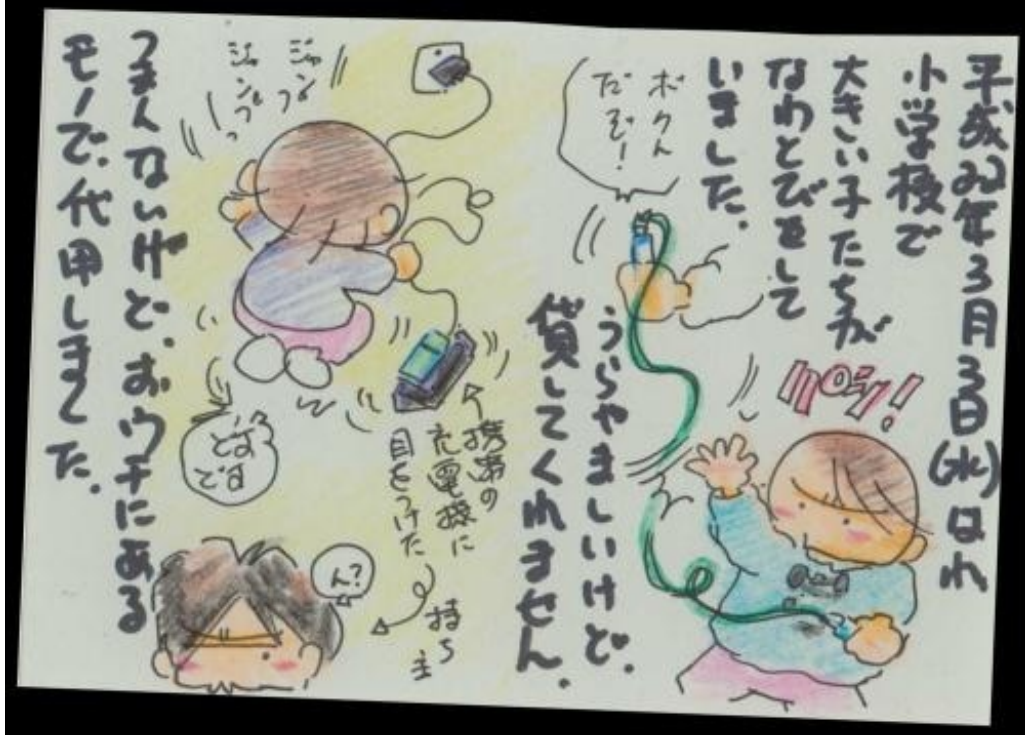 平成22年3月3日(水)はれ
小学校で
大きい子たちが
なわとびをして
いました。
ボクん
だぞ!
パシッ!
うらやましいけど、
貸してくれません。
ジャンプ
ジャンプっ
携帯の
充電機に
目をつけた
持ち
主
ん?
つまんないけど、おウチにある
モノで、代用しました。